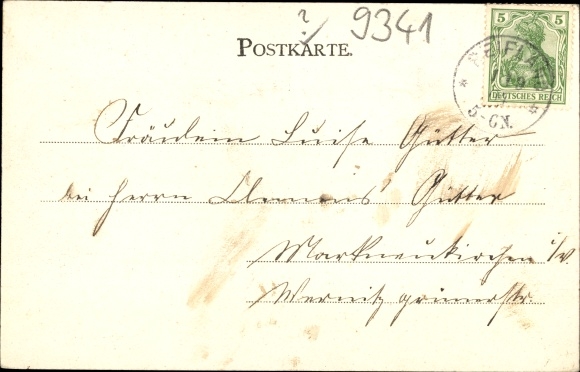 ? 9341
POSTKARTE.
5 5
DEUTSCHES REICH
5-6N.
Fräulein Luise Gütter
bei Herrn Clemens Gütter
Markneukirchen i/V
Wernitzgrünerstr.